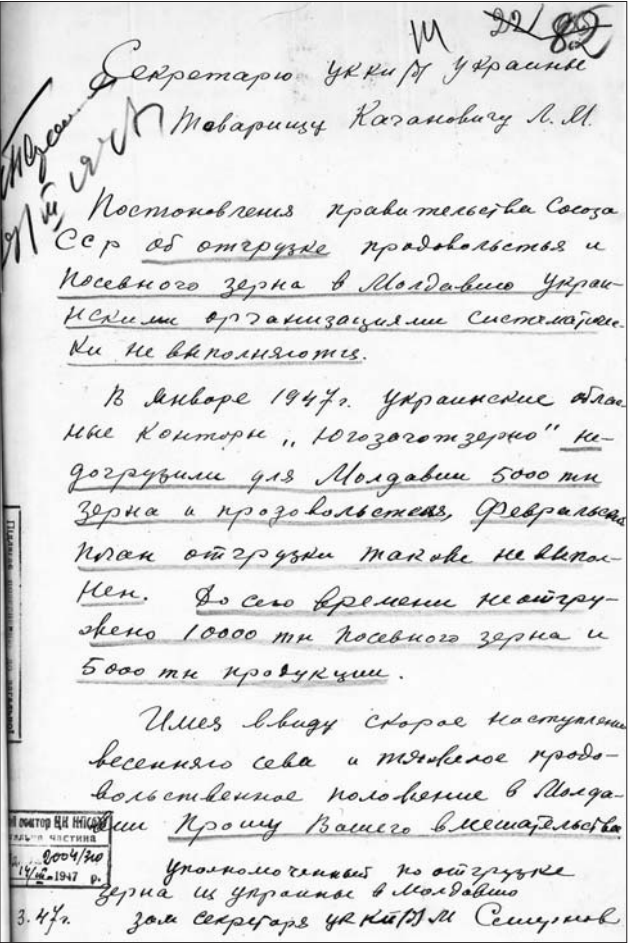 22/ 82
Секретарю ЦК КП/б/ Украины
Товарищу Кагановичу Л. М.
Постановления правительства Союза
ССР об отгрузке продовольствия и
посевного зерна в Молдавию украи-
нскими организациями системати-
ки не выполняются.
В январе 1947г. украинские облас-
ные конторы „Югозаготзерно" не-
догрузили для Молдавии 5000 тн
зерна и продовольствия, Февральский
план отгрузки также не выпол-
нен. До сего времени не отгру-
жено 10000 тн посевного зерна и
5000 тн продукции.
Имея ввиду скорое наступление
весеннего сева и тяжелое продо-
вольственное положение в Молда-
вии прошу Вашего вмешательства
уполномоченный по отгрузке
зерна из украины в Молдавию
3.47г. зам секретаря ЦК КП/б/М Смирнов
сектор ЦК КП(б)У
частина
2004/310
14/III 1947 р.